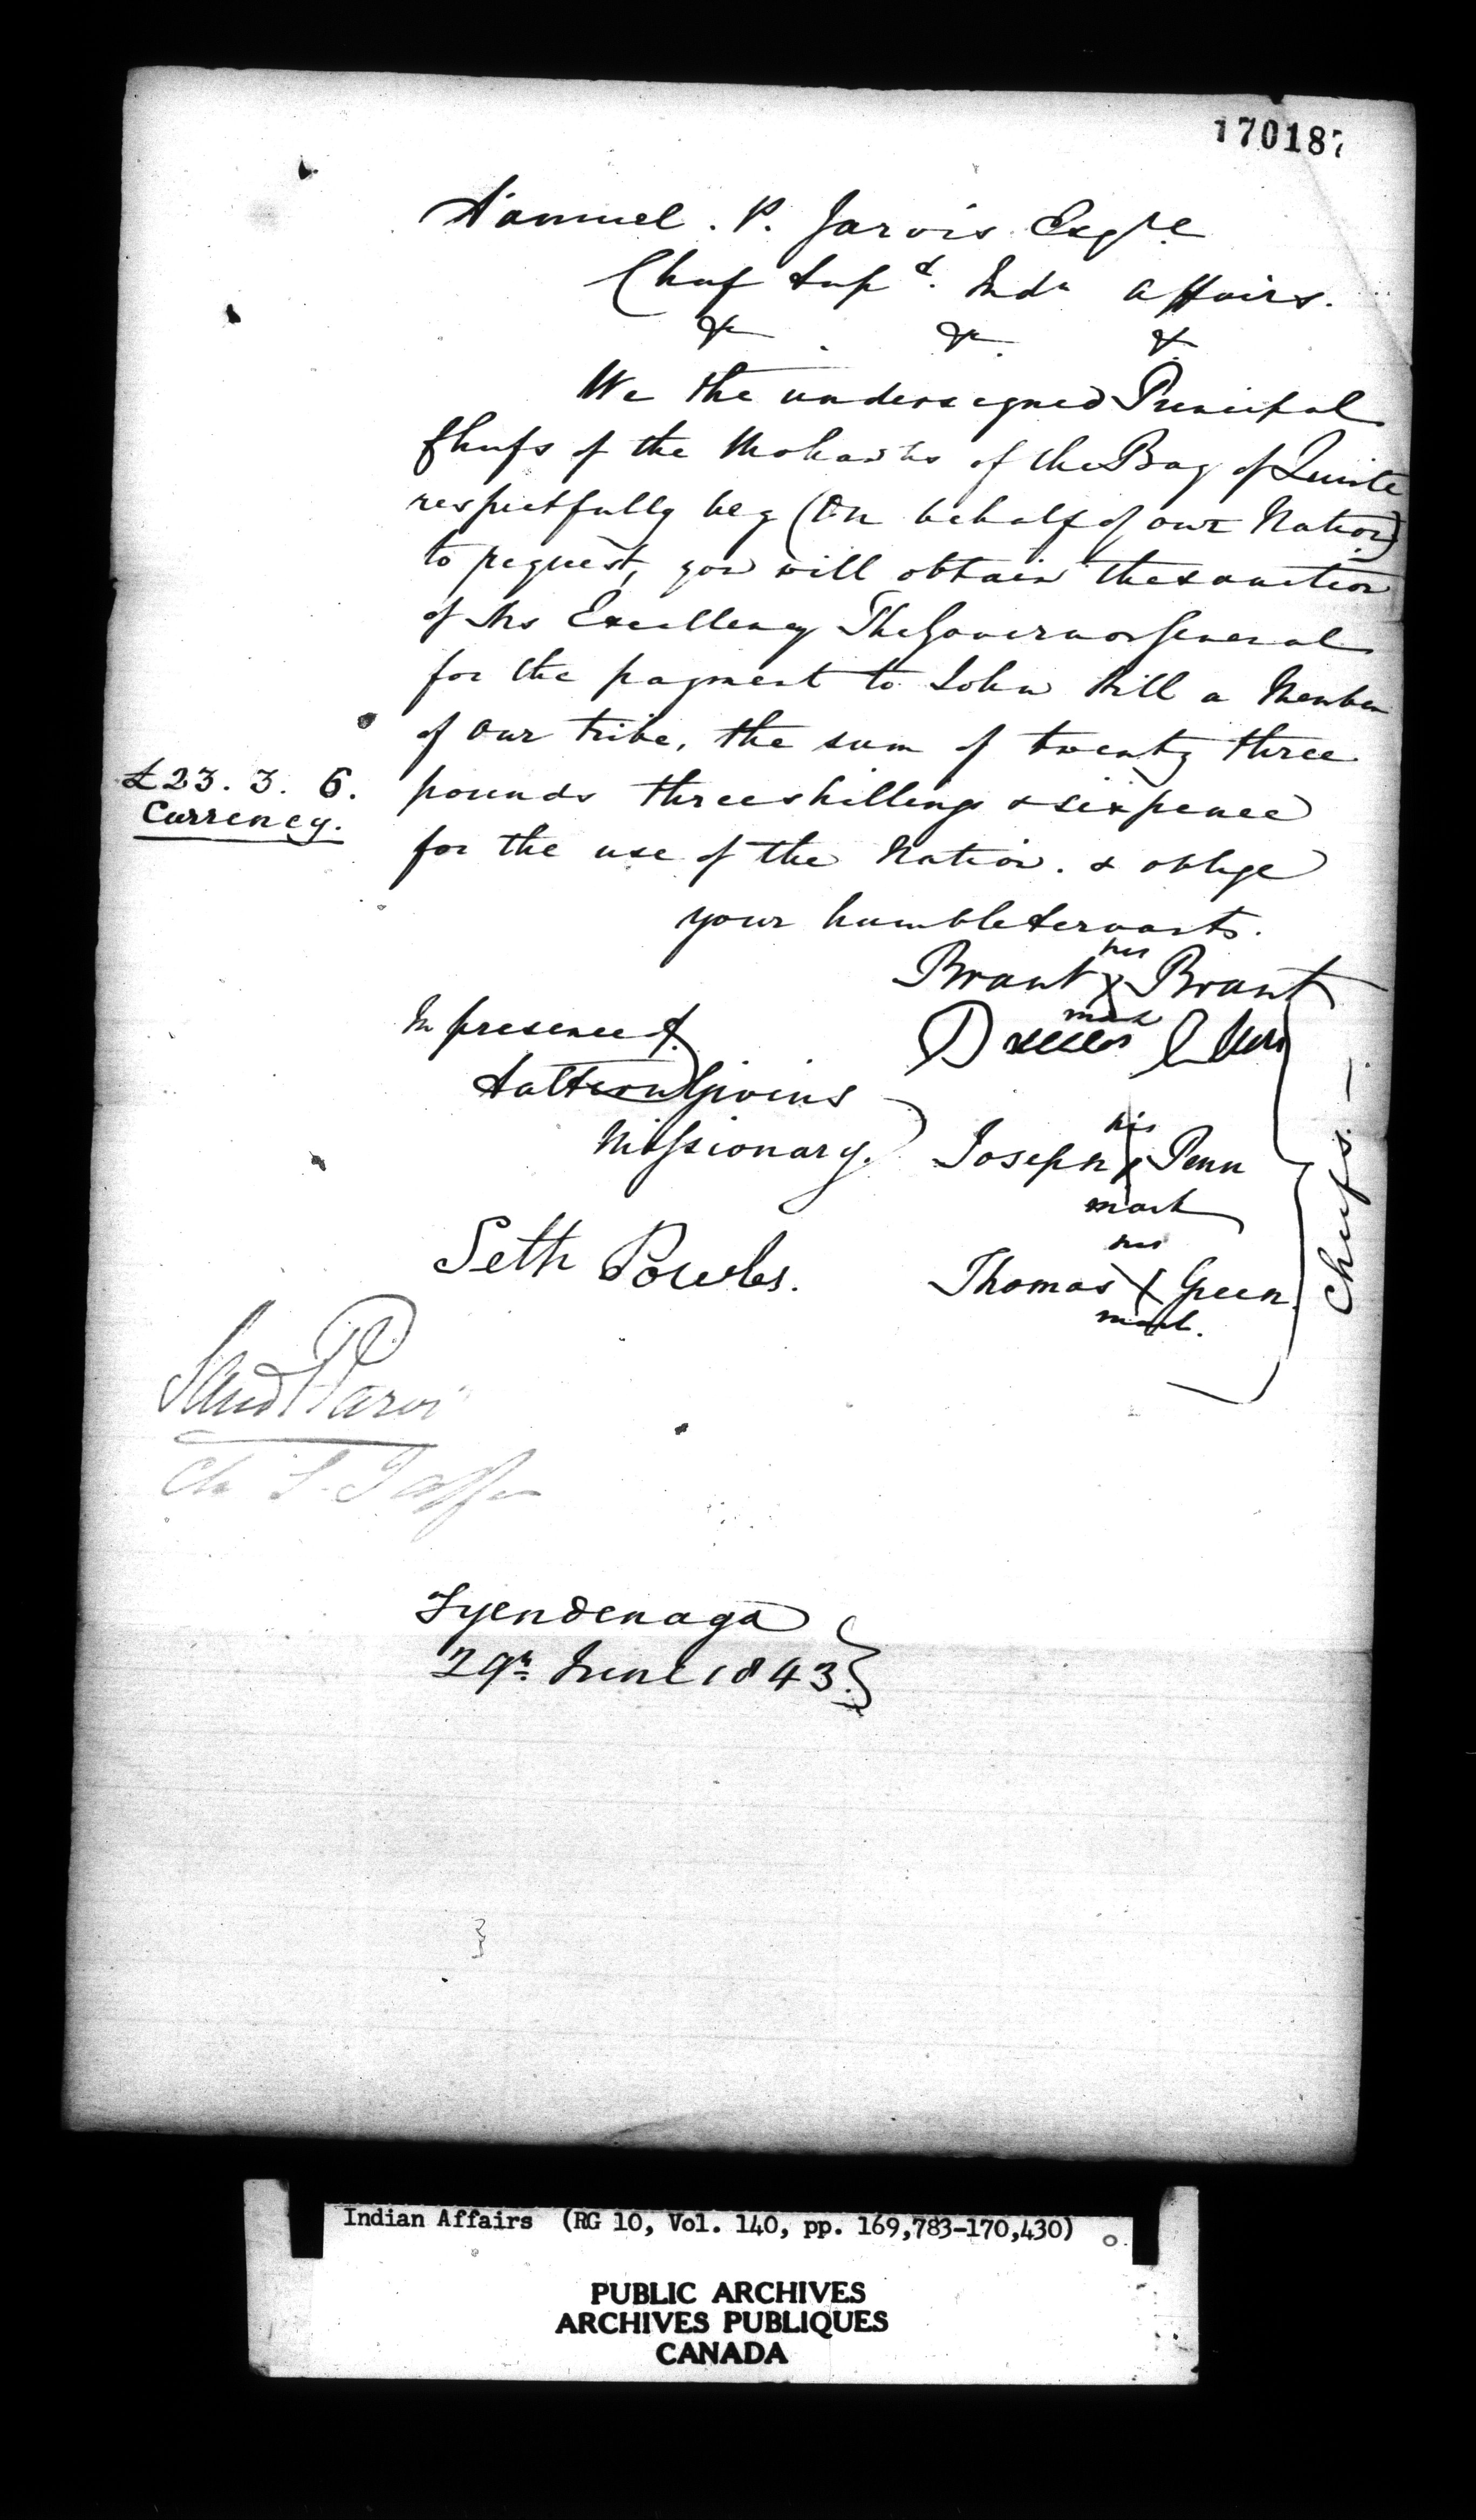 170187
Samuel. P. Jarvis Esqre
Chief Supt. Indn Affairs.
&c . &c. &c
We the undersigned Principal
Chiefs of the Mohawks of the Bay of Quinte
respectfully beg (On behalf of our Nation)
to request, you will obtain the sanction
of His Excellency The Governor General
for the payment to John Hill a Member
of our tribe, the sum of twenty three
£23. 3. 6. pounds three shillings & sixpence
Currency.
for the use of the Nation. & oblige
your humble servants.
Brant his X mark Brant
In presence of
Saltern Givins
Missionary.
Joseph his X mark Penn
Seth Powles.
Thomas his X mark Green.
Chiefs. —
Saml P Jarvis
Tyendenaga
29th June 1843.
Indian Affairs (RG 10, Vol. 140, pp. 169,783-170,430)
PUBLIC ARCHIVES
ARCHIVES PUBLIQUES
CANADA